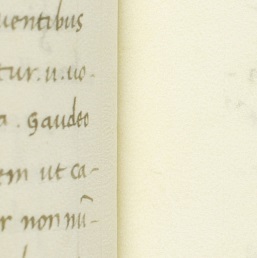 uentibus
tur.u.uo-
a. Gaudeo
em ut ca-
r non nū-